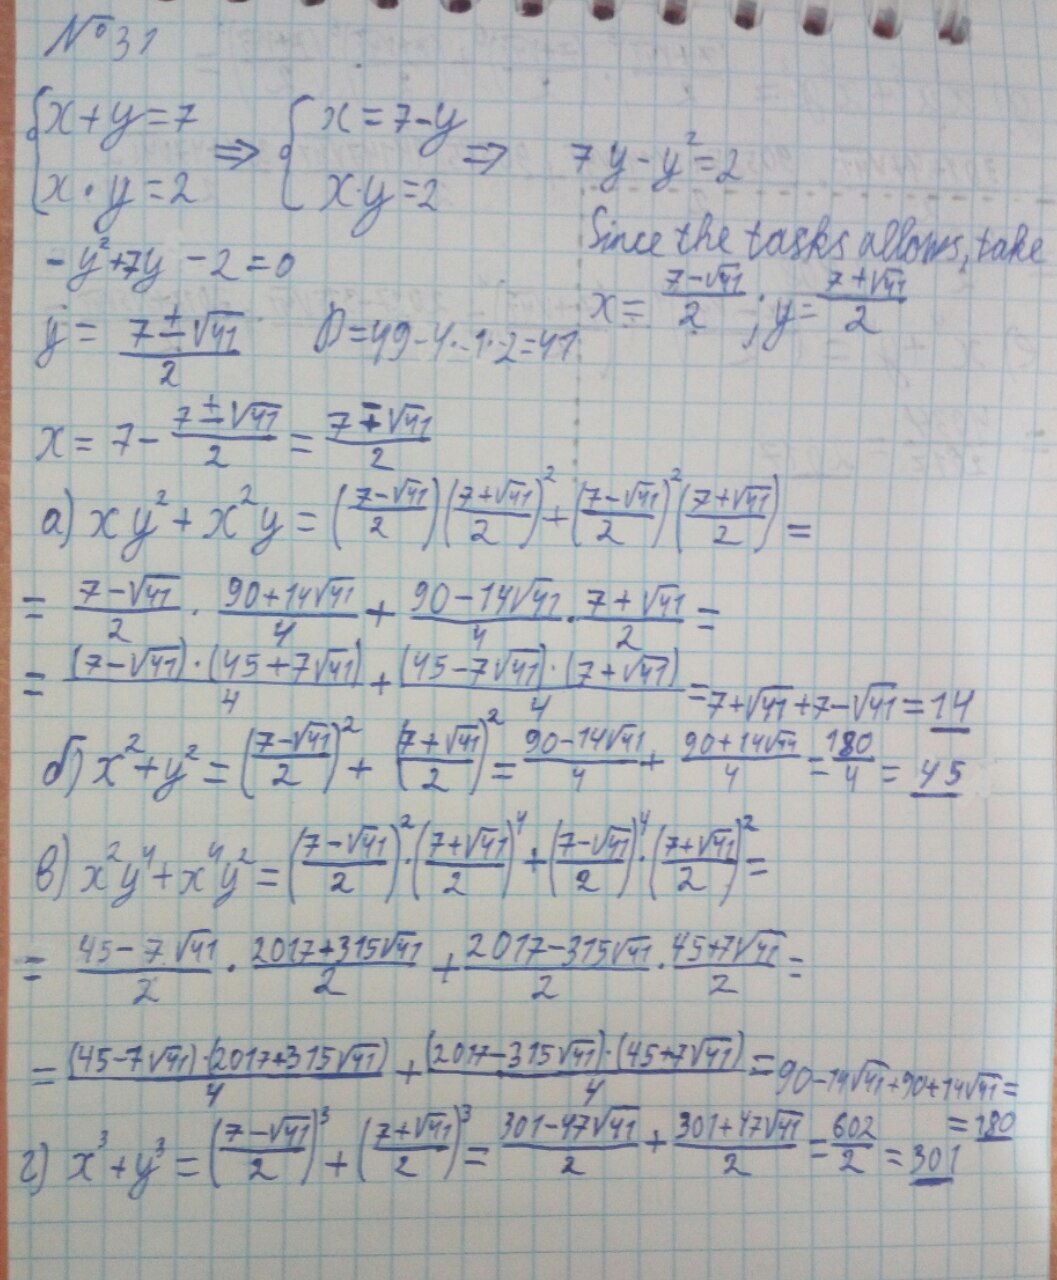 №31
{x+y=7 {x=7-y
x·y=2 ⇒ x·y=2 ⇒ 7y-y²=2
-y²+7y-2=0
Since the tasks allows, take
x=(7-√41)/2; y=(7+√41)/2
y=(7±√41)/2 D=49-4·-1·2=41
x=7-(7±√41)/2=(7∓√41)/2
а) xy²+x²y=((7-√41)/2)((7+√41)/2)²+((7-√41)/2)²((7+√41)/2)=
=(7-√41)/2·(90+14√41)/4+(90-14√41)/4·(7+√41)/2=
=((7-√41)·(45+7√41))/4+((45-7√41)·(7+√41))/4=7+√41+7-√41=14
б) x²+y²=((7-√41)/2)²+((7+√41)/2)²=(90-14√41)/4+(90+14√41)/4=180/4=45
в) x²y⁴+x⁴y²=((7-√41)/2)²·((7+√41)/2)⁴+((7-√41)/2)⁴·((7+√41)/2)²=
=(45-7√41)/2·(2017+315√41)/2+(2017-315√41)/2·(45+7√41)/2=
=((45-7√41)·(2017+315√41))/4+((2017-315√41)·(45+7√41))/4=90-14√41+90+14√41=
=180
г) x³+y³=((7-√41)/2)³+((7+√41)/2)³=(301-47√41)/2+(301+47√41)/2=602/2=301